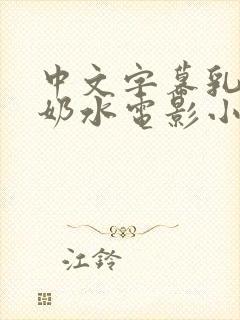 中文字幕乳
奶水电影小
江铃